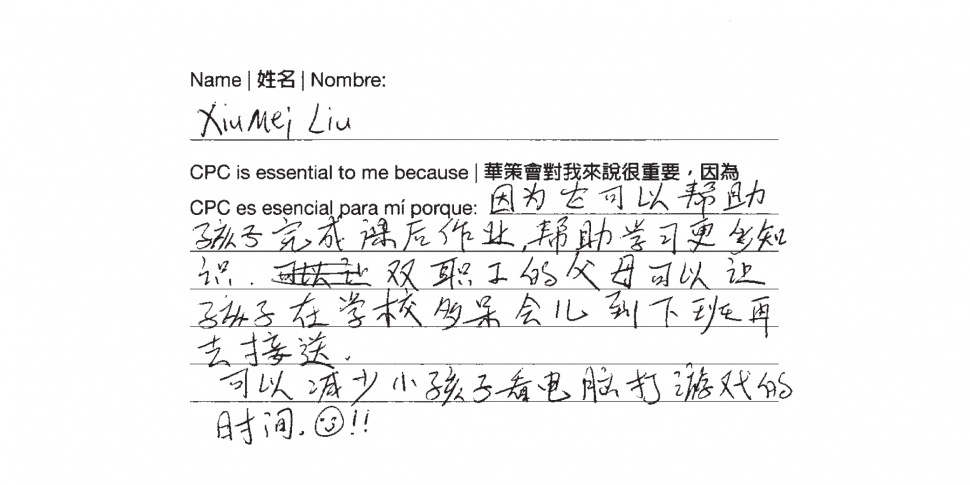 Name | 姓名 | Nombre:
XiuMei Liu
CPC is essential to me because | 華策會對我來說很重要，因為
CPC es esencial para mí porque: 因为它可以帮助
孩子完成课后作业，帮助学习更多知
识. 双职工的父母可以让
孩子在学校多呆会儿到下班再
去接送.
可以减少小孩子看电脑打游戏的
时间. ☺!!